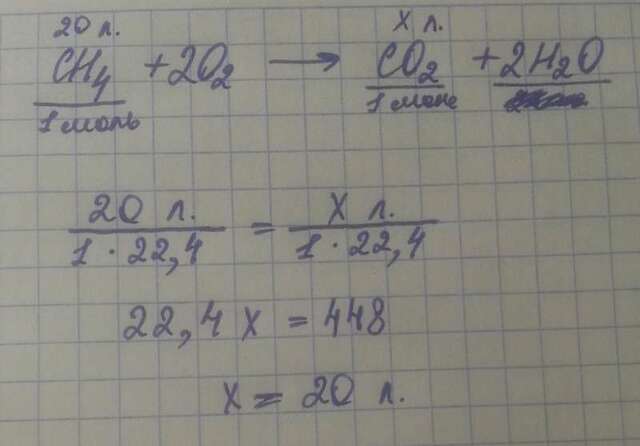 20 л. x л.
CH₄ + 2O₂ → CO₂ + 2H₂O
1 моль 1 моль
20 л. / 1 · 22,4 = x л. / 1 · 22,4
22,4 x = 448
x = 20 л.